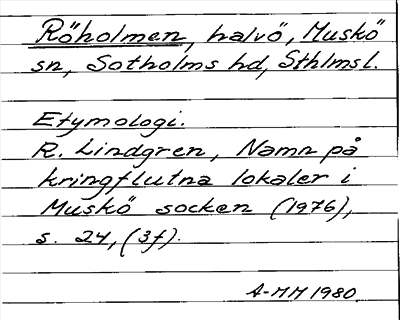 Röholmen, halvö, Muskö
sn, Sotholms hd, Sthlmsl.
Etymologi.
R. Lindgren, Namn på
kringflutna lokaler i
Muskö socken (1976),
s. 24, (3f).
A-MM 1980.